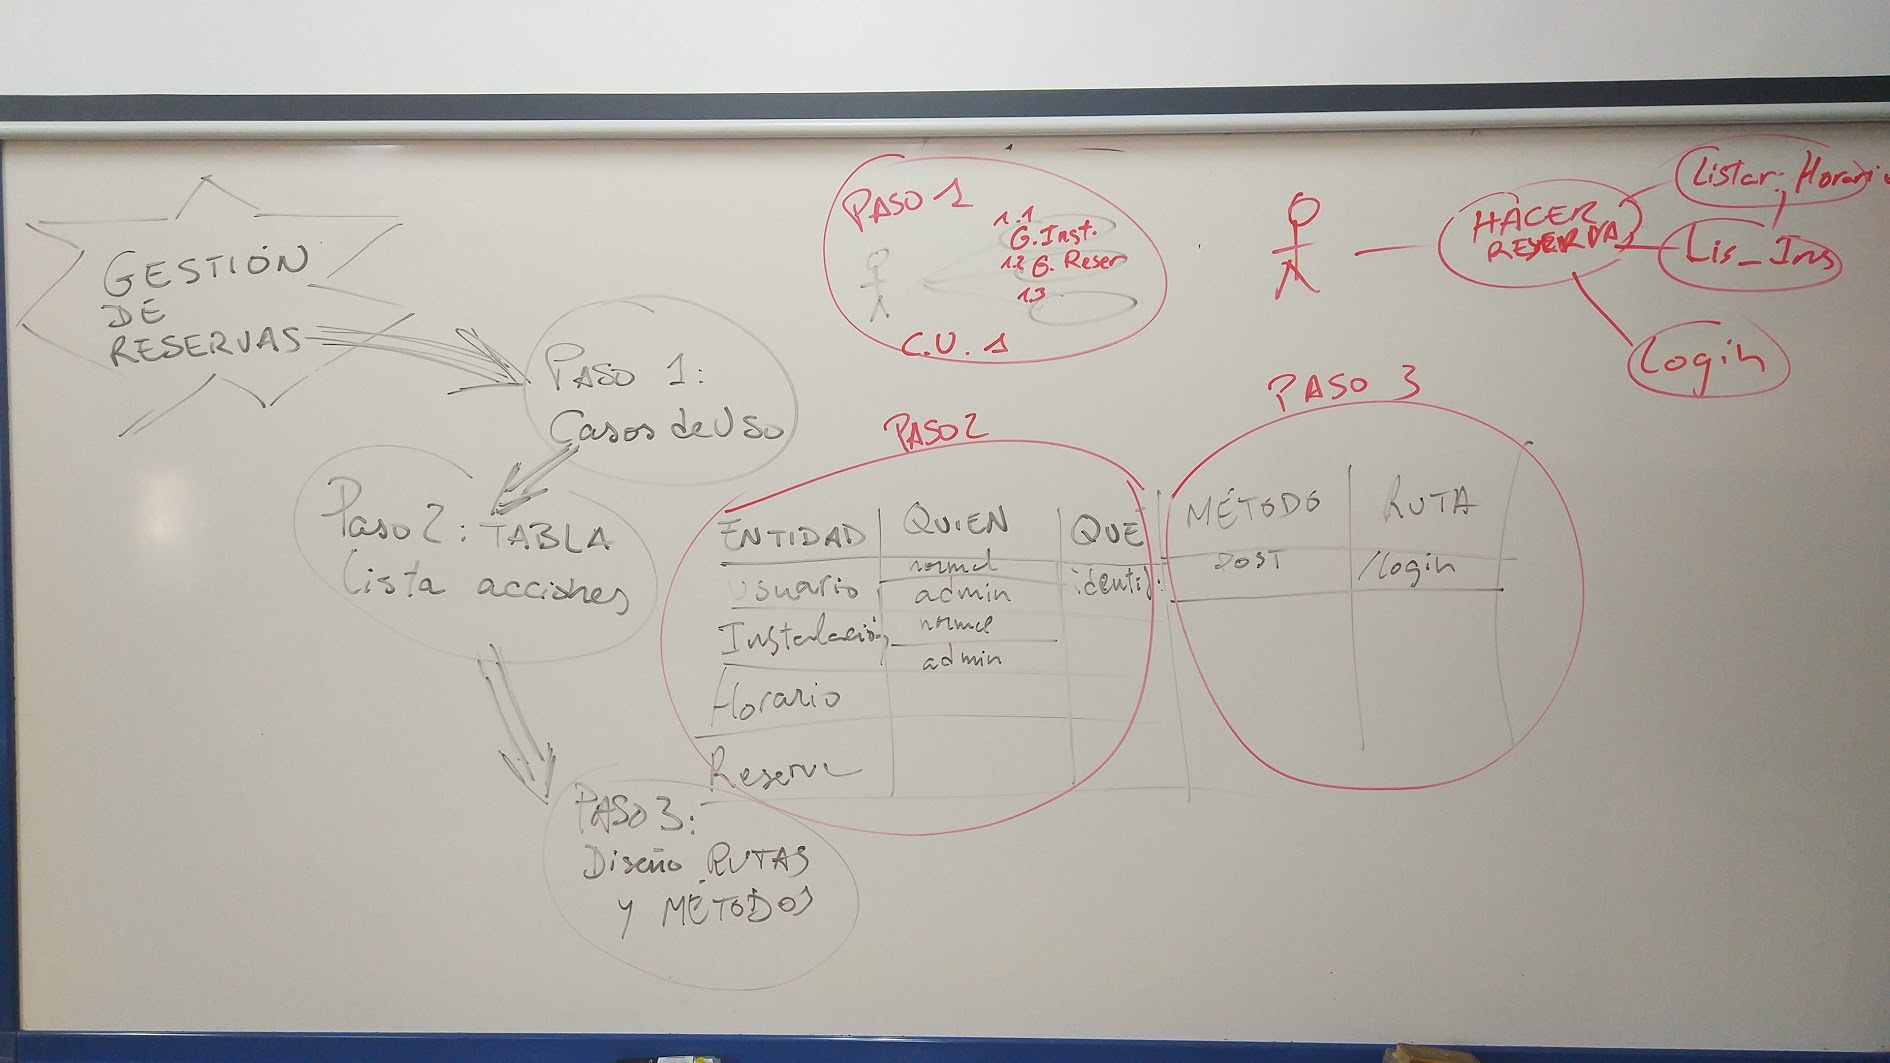 GESTIÓN
DE
RESERVAS
PASO 1:
Casos de Uso
Paso 2: TABLA
Lista acciones
PASO 3:
Diseño RUTAS
y MÉTODOS
PASO 1
1.1
G. Inst.
1.2 G. Reser
1.3
C.U. 1
HACER
RESERVA
Listar Horari
Lis_Ins
Login
PASO 2
ENTIDAD QUIEN QUÉ
Usuario normal identif.
admin
Instalación normal
admin
Horario
Reserva
PASO 3
MÉTODO RUTA
POST /login